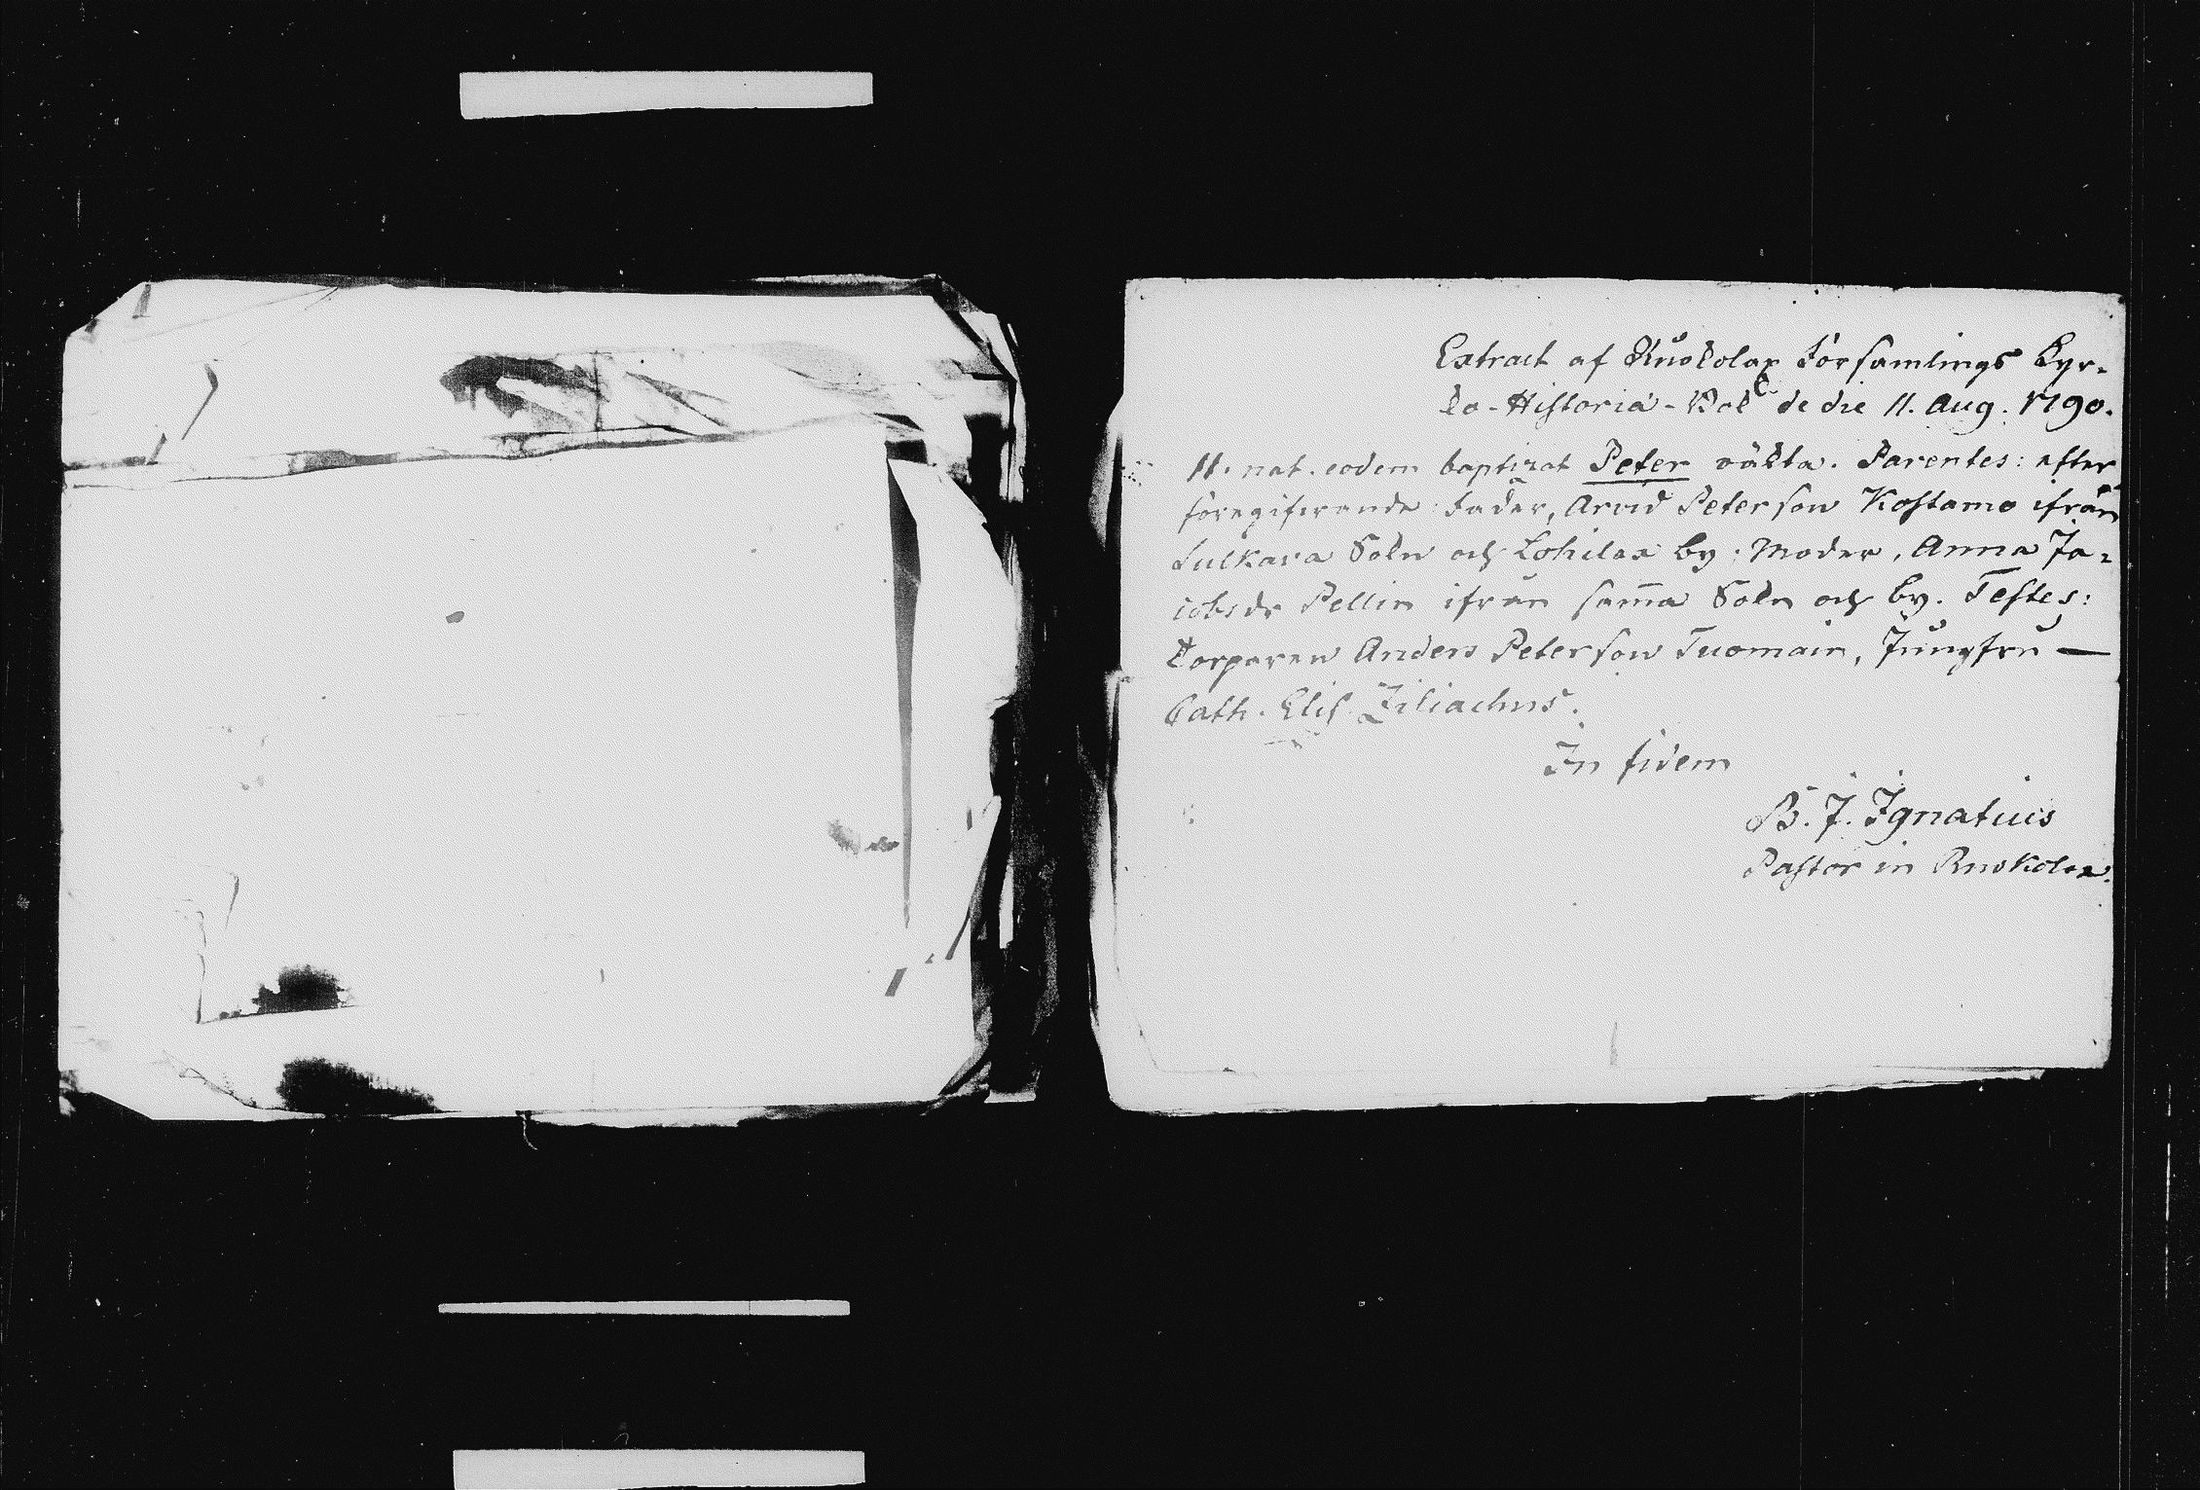 Extract af Ruokolax Församlings Kyr-
ko-Historiæ-Bok de die 11. Aug. 1790.
11. nat. eodem baptizat Peter oäkta. Parentes: efter
föregifvande Fader, Arvid Peterson Kostamo ifrån
Sulkava Sokn och Lohilax by; Moder, Anna Ja-
cobsdr Pellin ifrån samma Sokn och by. Testes:
Torparen Anders Peterson Tuomain, Jungfru —
Cath. Elis. Ziliachus.
In fidem
B. J. Ignatius
Pastor in Ruokolax.